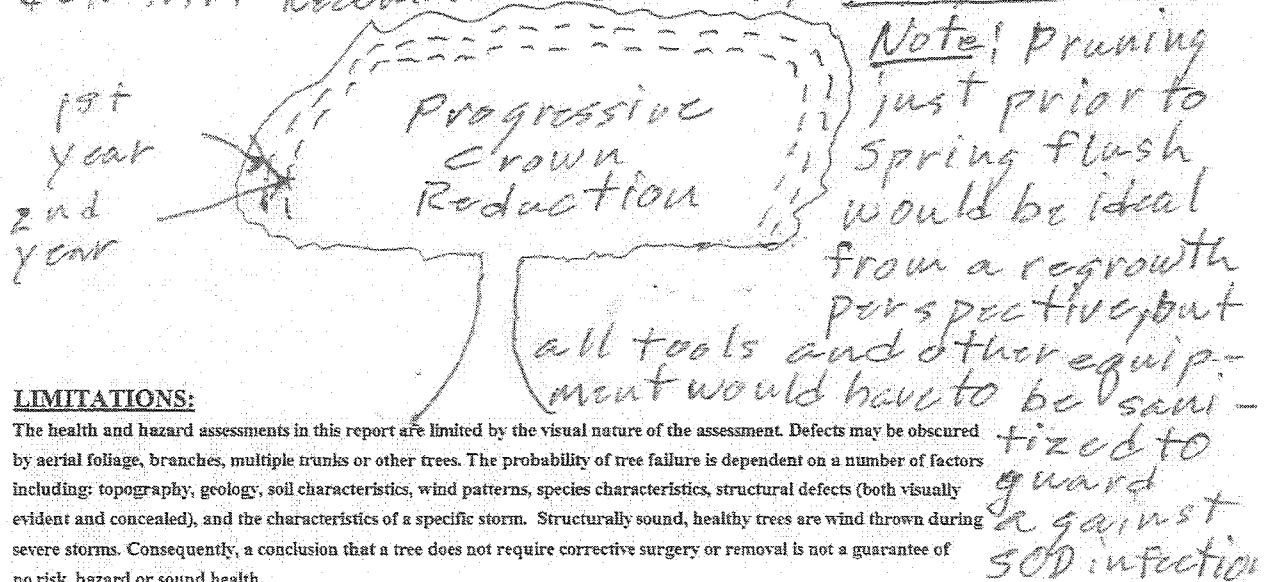 1st
year
2nd
year
Progressive
Crown
Reduction
Note! Pruning
just prior to
spring flush
would be ideal
from a regrowth
perspective, but
all tools and other equip-
ment would have to be sani-
tized to
guard
against
SOD infection
LIMITATIONS:
The health and hazard assessments in this report are limited by the visual nature of the assessment. Defects may be obscured
by aerial foliage, branches, multiple trunks or other trees. The probability of tree failure is dependent on a number of factors
including: topography, geology, soil characteristics, wind patterns, species characteristics, structural defects (both visually
evident and concealed), and the characteristics of a specific storm. Structurally sound, healthy trees are wind thrown during
severe storms. Consequently, a conclusion that a tree does not require corrective surgery or removal is not a guarantee of
no risk, hazard or sound health.